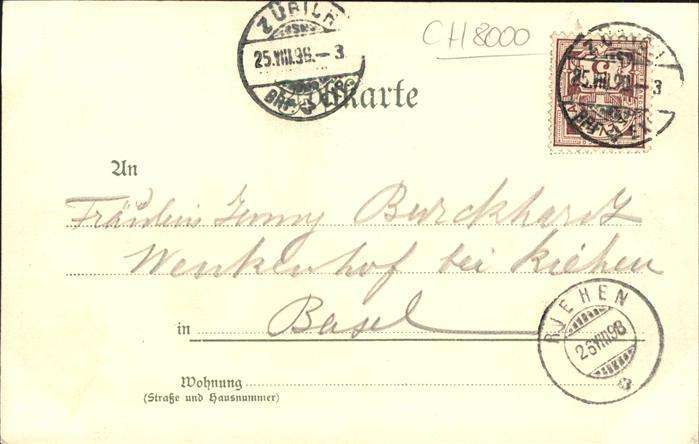 ZÜRICH
25.VIII.98.-3
CH 8000
Postkarte
ZÜRICH
25.VIII.98.-3
An
Fräulein Jenny Burckhardt
Wenkenhof bei Riehen
in Basel
RIEHEN
26.VIII.98
Wohnung
(Straße und Hausnummer)